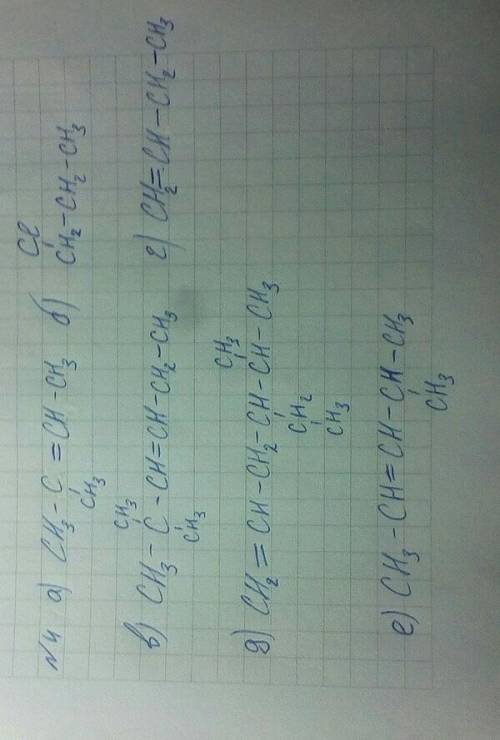 Cl
№4 а) CH₃-C=CH-CH₃ б) CH₂-CH₂-CH₃
CH₃
CH₃
в) CH₃-C-CH=CH-CH₂-CH₃ г) CH₂=CH-CH₂-CH₃
CH₃
CH₃
д) CH₂=CH-CH₂-CH-CH-CH₃
CH₂
CH₃
е) CH₃-CH=CH-CH-CH₃
CH₃